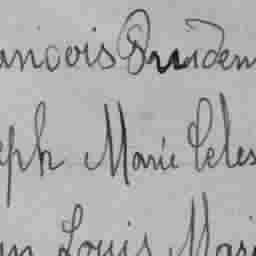 ançois Pruden
eph Marie Celes
an Louis Mari